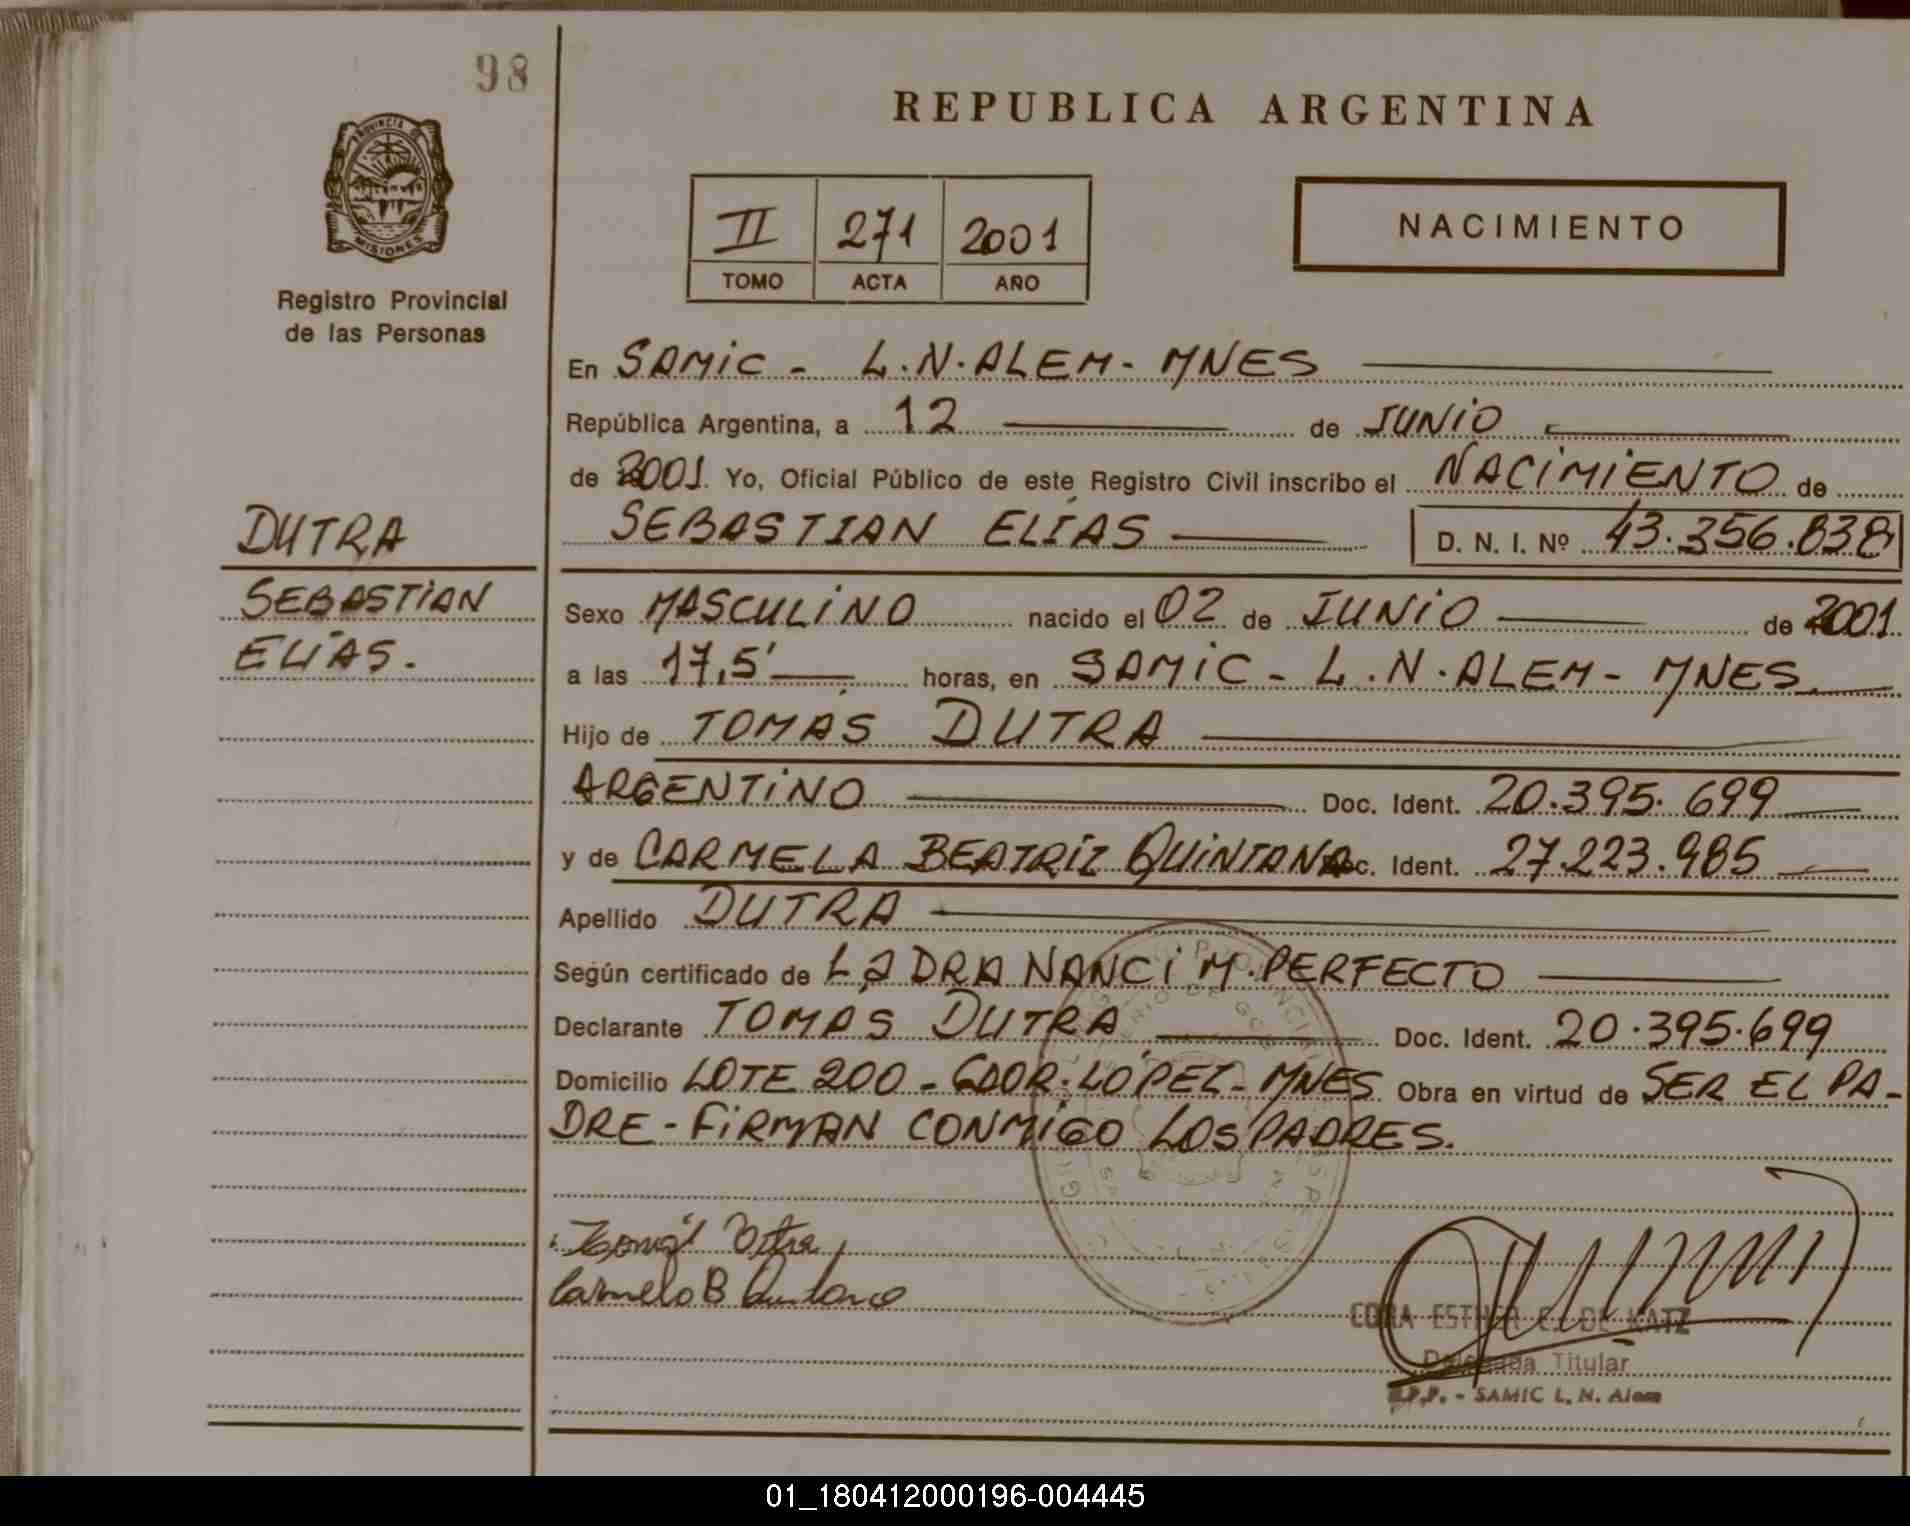 98
REPUBLICA ARGENTINA
PROVINCIA DE
MISIONES
Registro Provincial
de las Personas
II 271 2001
TOMO ACTA AÑO
NACIMIENTO
En SAMIC - L.N. ALEM - MNES
República Argentina, a 12 de JUNIO
de 2001. Yo, Oficial Público de este Registro Civil inscribo el NACIMIENTO de
SEBASTIAN ELÍAS D. N. I. Nº 43.356.838
DUTRA
SEBASTIAN
ELÍAS.
Sexo MASCULINO nacido el 02 de JUNIO de 2001
a las 17,5' horas, en SAMIC - L.N. ALEM - MNES
Hijo de TOMÁS DUTRA
ARGENTINO Doc. Ident. 20.395.699
y de CARMELA BEATRIZ QUINTANA Doc. Ident. 27.223.985
Apellido DUTRA
Según certificado de La DRA NANCI M. PERFECTO
Declarante TOMÁS DUTRA Doc. Ident. 20.395.699
Domicilio LOTE 200 - GDOR. LÓPEZ - MNES Obra en virtud de SER EL PA-
DRE - FIRMAN CONMIGO LOS PADRES.
Carmela B Quintana
CORA ESTHER E. DE KATZ
Delegada Titular
R.P.P. - SAMIC L. N. Alem
01_180412000196-004445